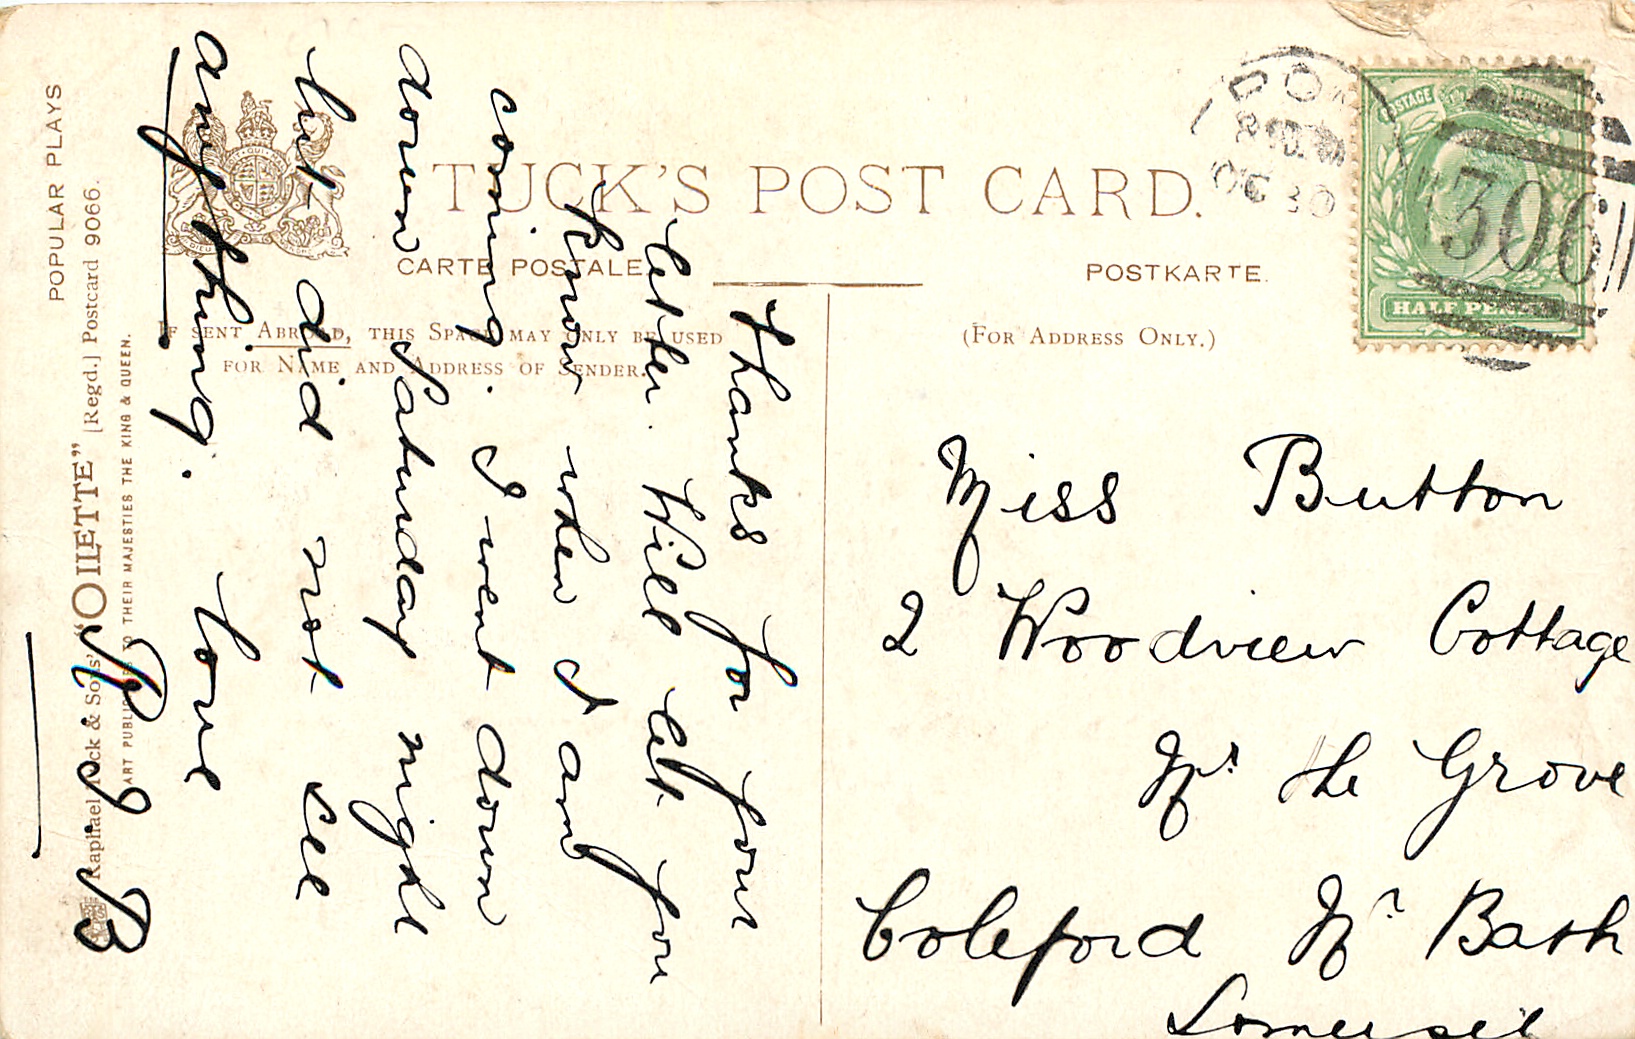 POPULAR PLAYS
Raphael Tuck & Sons' "OILETTE" [Regd.] Postcard 9066.
ART PUBLISHERS TO THEIR MAJESTIES THE KING & QUEEN.
TUCK'S POST CARD.
CARTE POSTALE.
POSTKARTE.
IF SENT ABROAD, THIS SPACE MAY ONLY BE USED
FOR NAME AND ADDRESS OF SENDER.
(FOR ADDRESS ONLY.)
POSTAGE
HALF PENNY
306
OC 30
Thanks for your
letter. Will let you
know when I am
coming. I went down
down Saturday night
but did not see
anything. Love
B
Miss Button
2 Woodview Cottage
Nr the Grove
Coleford Nr Bath
Somerset